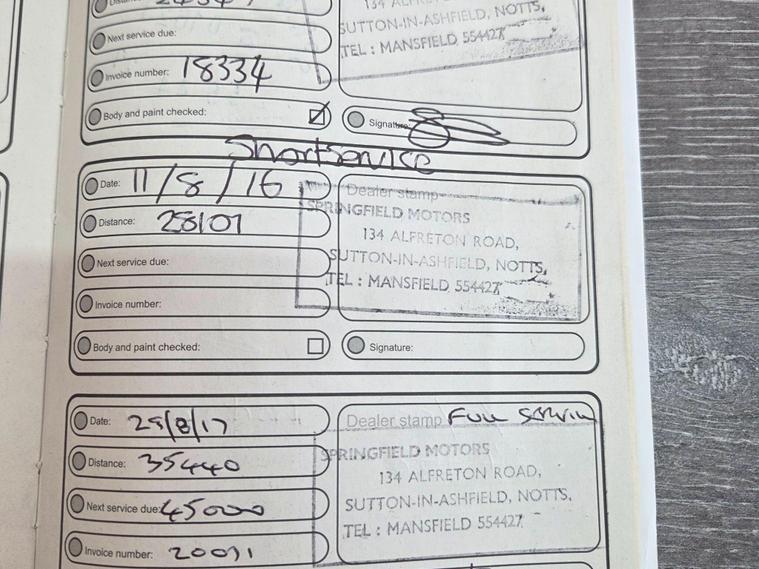 134
SUTTON-IN-ASHFIELD, NOTTS.
Next service due:
TEL : MANSFIELD 554427
Invoice number: 18334
Body and paint checked:
Signature:
Short service
Date: 11/8/16
Dealer stamp
SPRINGFIELD MOTORS
Distance: 28107
134 ALFRETON ROAD,
Next service due:
SUTTON-IN-ASHFIELD, NOTTS.
TEL : MANSFIELD 554427
Invoice number:
Body and paint checked:
Signature:
Date: 25/8/17
Dealer stamp Full Service
SPRINGFIELD MOTORS
Distance: 35440
134 ALFRETON ROAD,
Next service due: 45000
SUTTON-IN-ASHFIELD, NOTTS.
TEL : MANSFIELD 554427
Invoice number: 20091